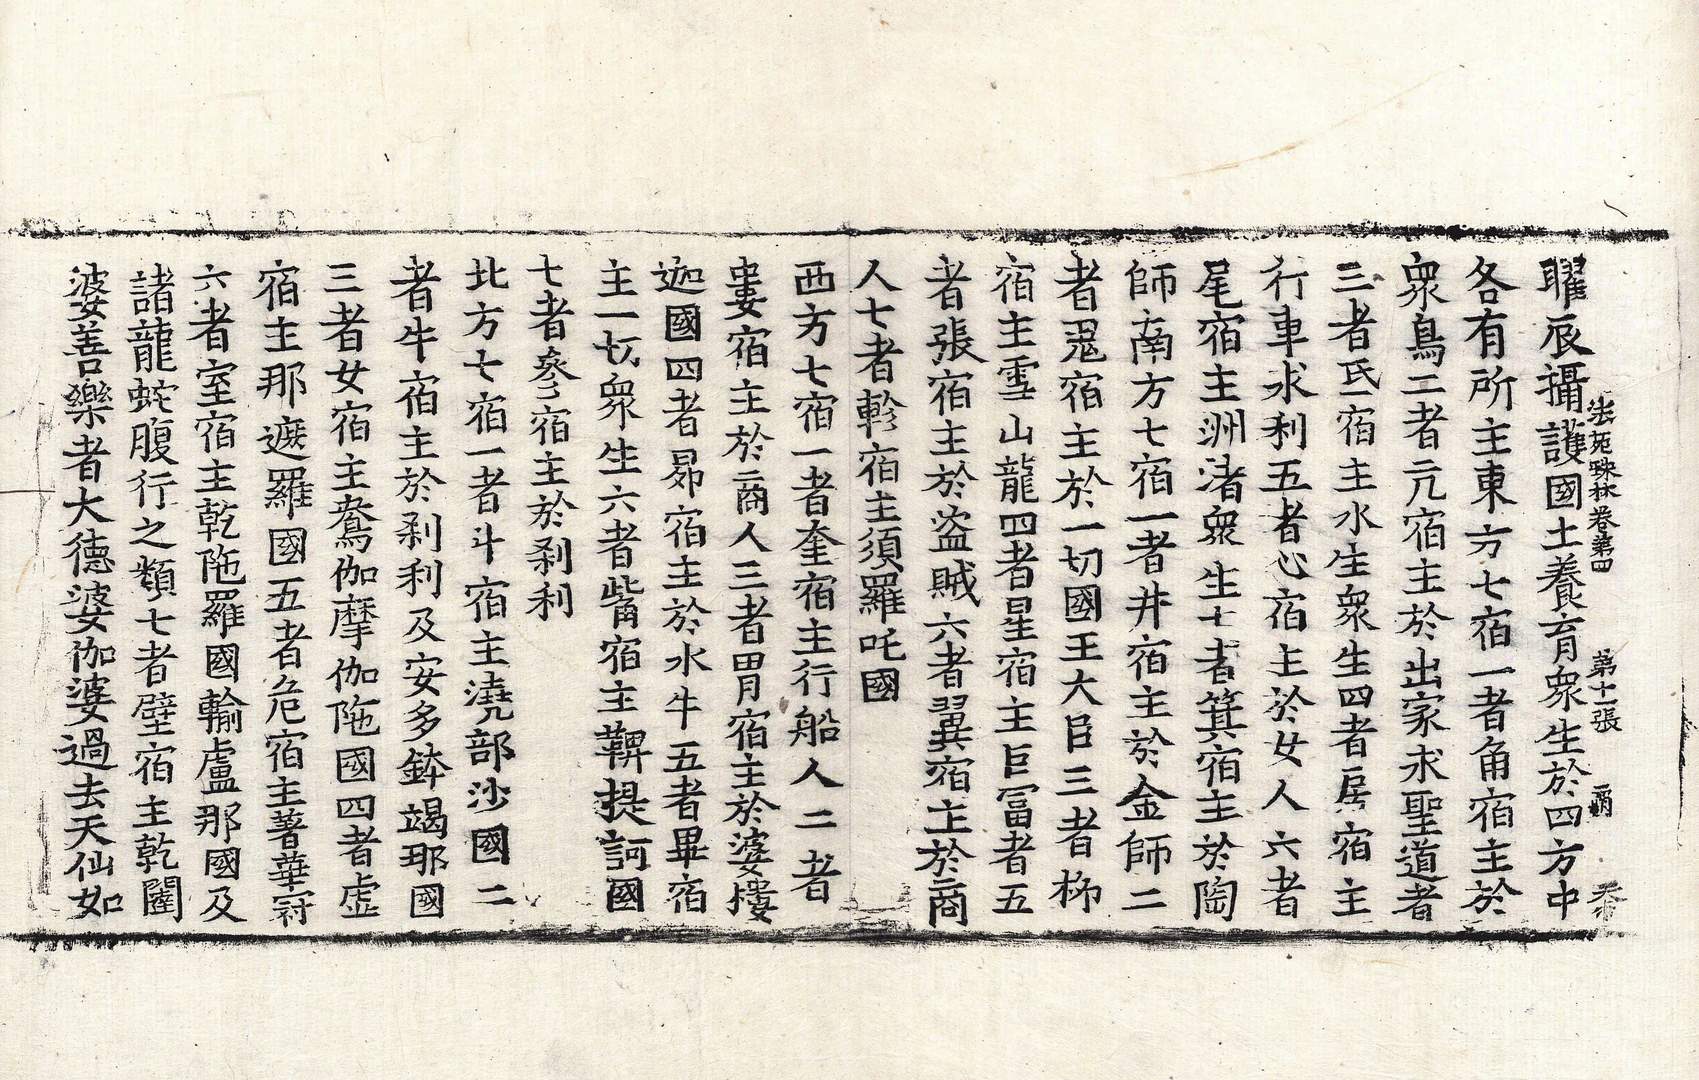 法苑珠林卷第四 第十一張
曜辰攝護國土養育衆生於四方中
各有所主東方七宿一者角宿主於
衆鳥二者亢宿主於出家求聖道者
三者氐宿主水生衆生四者房宿主
行車求利五者心宿主於女人六者
尾宿主洲渚衆生七者箕宿主於陶
師南方七宿一者井宿主於金師二
者鬼宿主於一切國王大臣三者柳
宿主雪山龍四者星宿主巨冨者五
者張宿主於盗賊六者翼宿主於商
人七者軫宿主須羅吒國
西方七宿一者奎宿主行船人二者
婁宿主於商人三者胃宿主於婆樓
迦國四者昴宿主於水牛五者畢宿
主一切衆生六者觜宿主鞞提訶國
七者參宿主於剎利
北方七宿一者斗宿主澆部沙國二
者牛宿主於剎利及安多鉢竭那國
三者女宿主鴦伽摩伽陁國四者虚
宿主那遮羅國五者危宿主著華冠
六者室宿主乾陁羅國輸盧那國及
諸龍蛇腹行之類七者壁宿主乾闥
婆善樂者大德婆伽婆過去天仙如